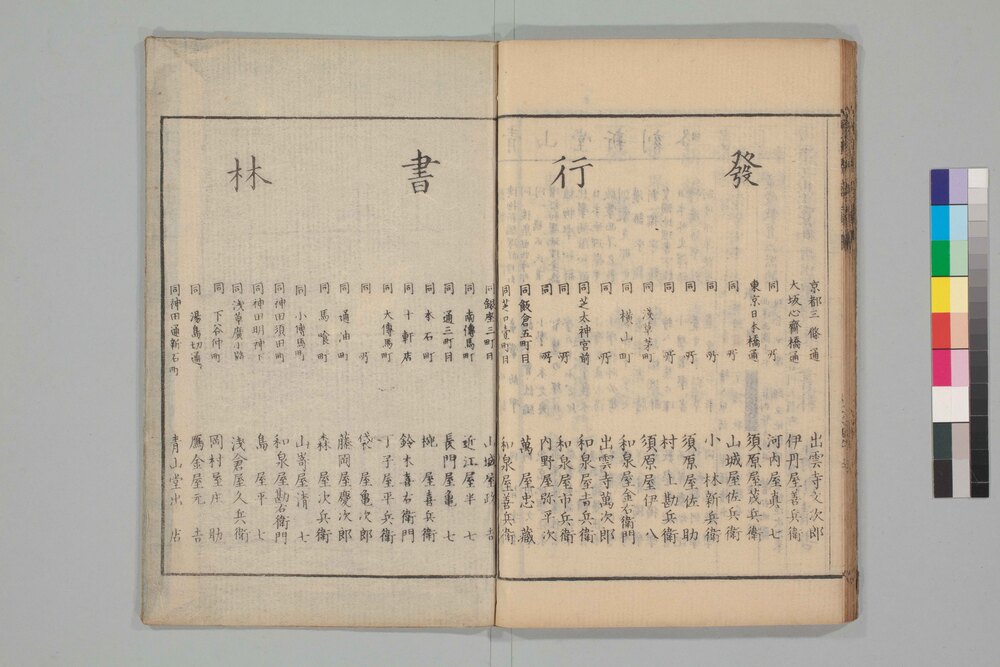 發行書林
京都三條通 出雲寺文次郎
大坂心齋橋通 伊丹屋善兵衛
同 所 河内屋真七
東京日本橋通 須原屋茂兵衛
同 所 山城屋佐兵衛
同 所 小林新兵衛
同 所 須原屋佐助
同 所 村上勘兵衛
同 浅草茅町 須原屋伊八
同 横山町 和泉屋金右衛門
同 所 出雲寺萬次郎
同 芝太神宮前 和泉屋吉兵衛
同 所 和泉屋市兵衛
同 所 内野屋弥平次
同 飯倉五町目 萬屋忠藏
同 芝口壹町目 和泉屋善兵衛
同 銀座三町目 山城屋政吉
同 南傳馬町 近江屋半七
同 通三町目 長門屋亀七
同 本石町 椀屋喜兵衛
同 十軒店 鈴木喜右衛門
同 大傳馬町 丁子屋平兵衛
同 所 袋屋亀次郎
同 通油町 藤岡屋慶次郎
同 馬喰町 森屋治兵衛
同 小傳馬町 山嵜屋清七
同 神田須田町 和泉屋勘右衛門
同 神田明神下 島屋平七
同 浅草廣小路 浅倉屋久兵衛
同 下谷仲町 岡村屋庄助
同 湯島切通 鴈金屋元吉
同 神田通新石町 青山堂出店